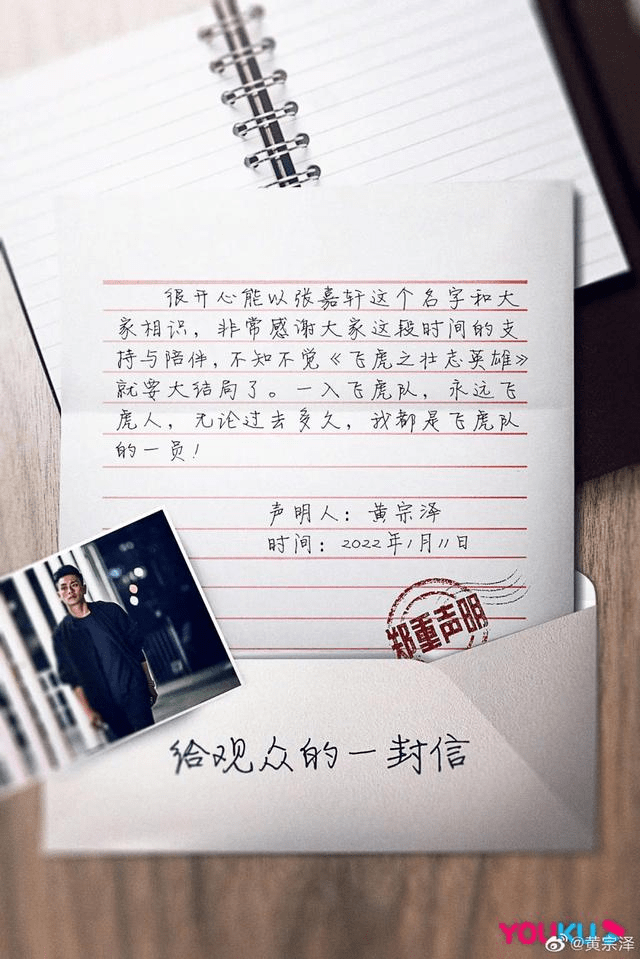 很开心能以张嘉轩这个名字和大
家相识，非常感谢大家这段时间的支
持与陪伴，不知不觉《飞虎之壮志英雄》
就要大结局了。一入飞虎队，永远飞
虎人，无论过去多久，我都是飞虎队
的一员！
声明人：黄宗泽
时间：2022年1月11日
郑重声明
给观众的一封信
YOUKU
@黄宗泽